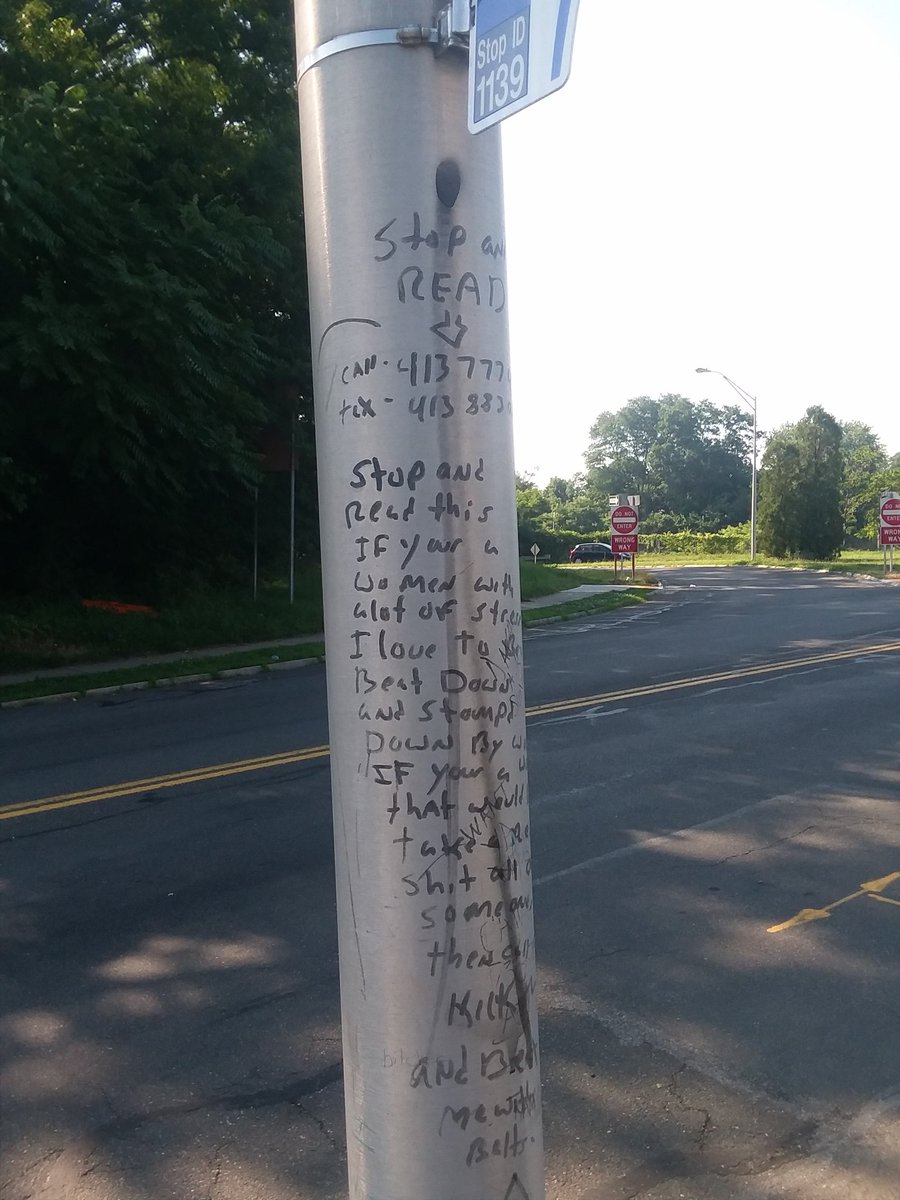 Stop ID
1139
Stop an
READ
CAll- 413 777
tex - 413 883
Stop and
Read this
IF your a
women with
alot of stres
I love to
Beat Down
and stomped
Down By w
IF your a w
that would
take a
shit all o
someone,
then call
Kick
and Beat
me with
Belts.
bitch
DO NOT
ENTER
WRONG
WAY
DO NOT
ENTER
WRONG
WAY